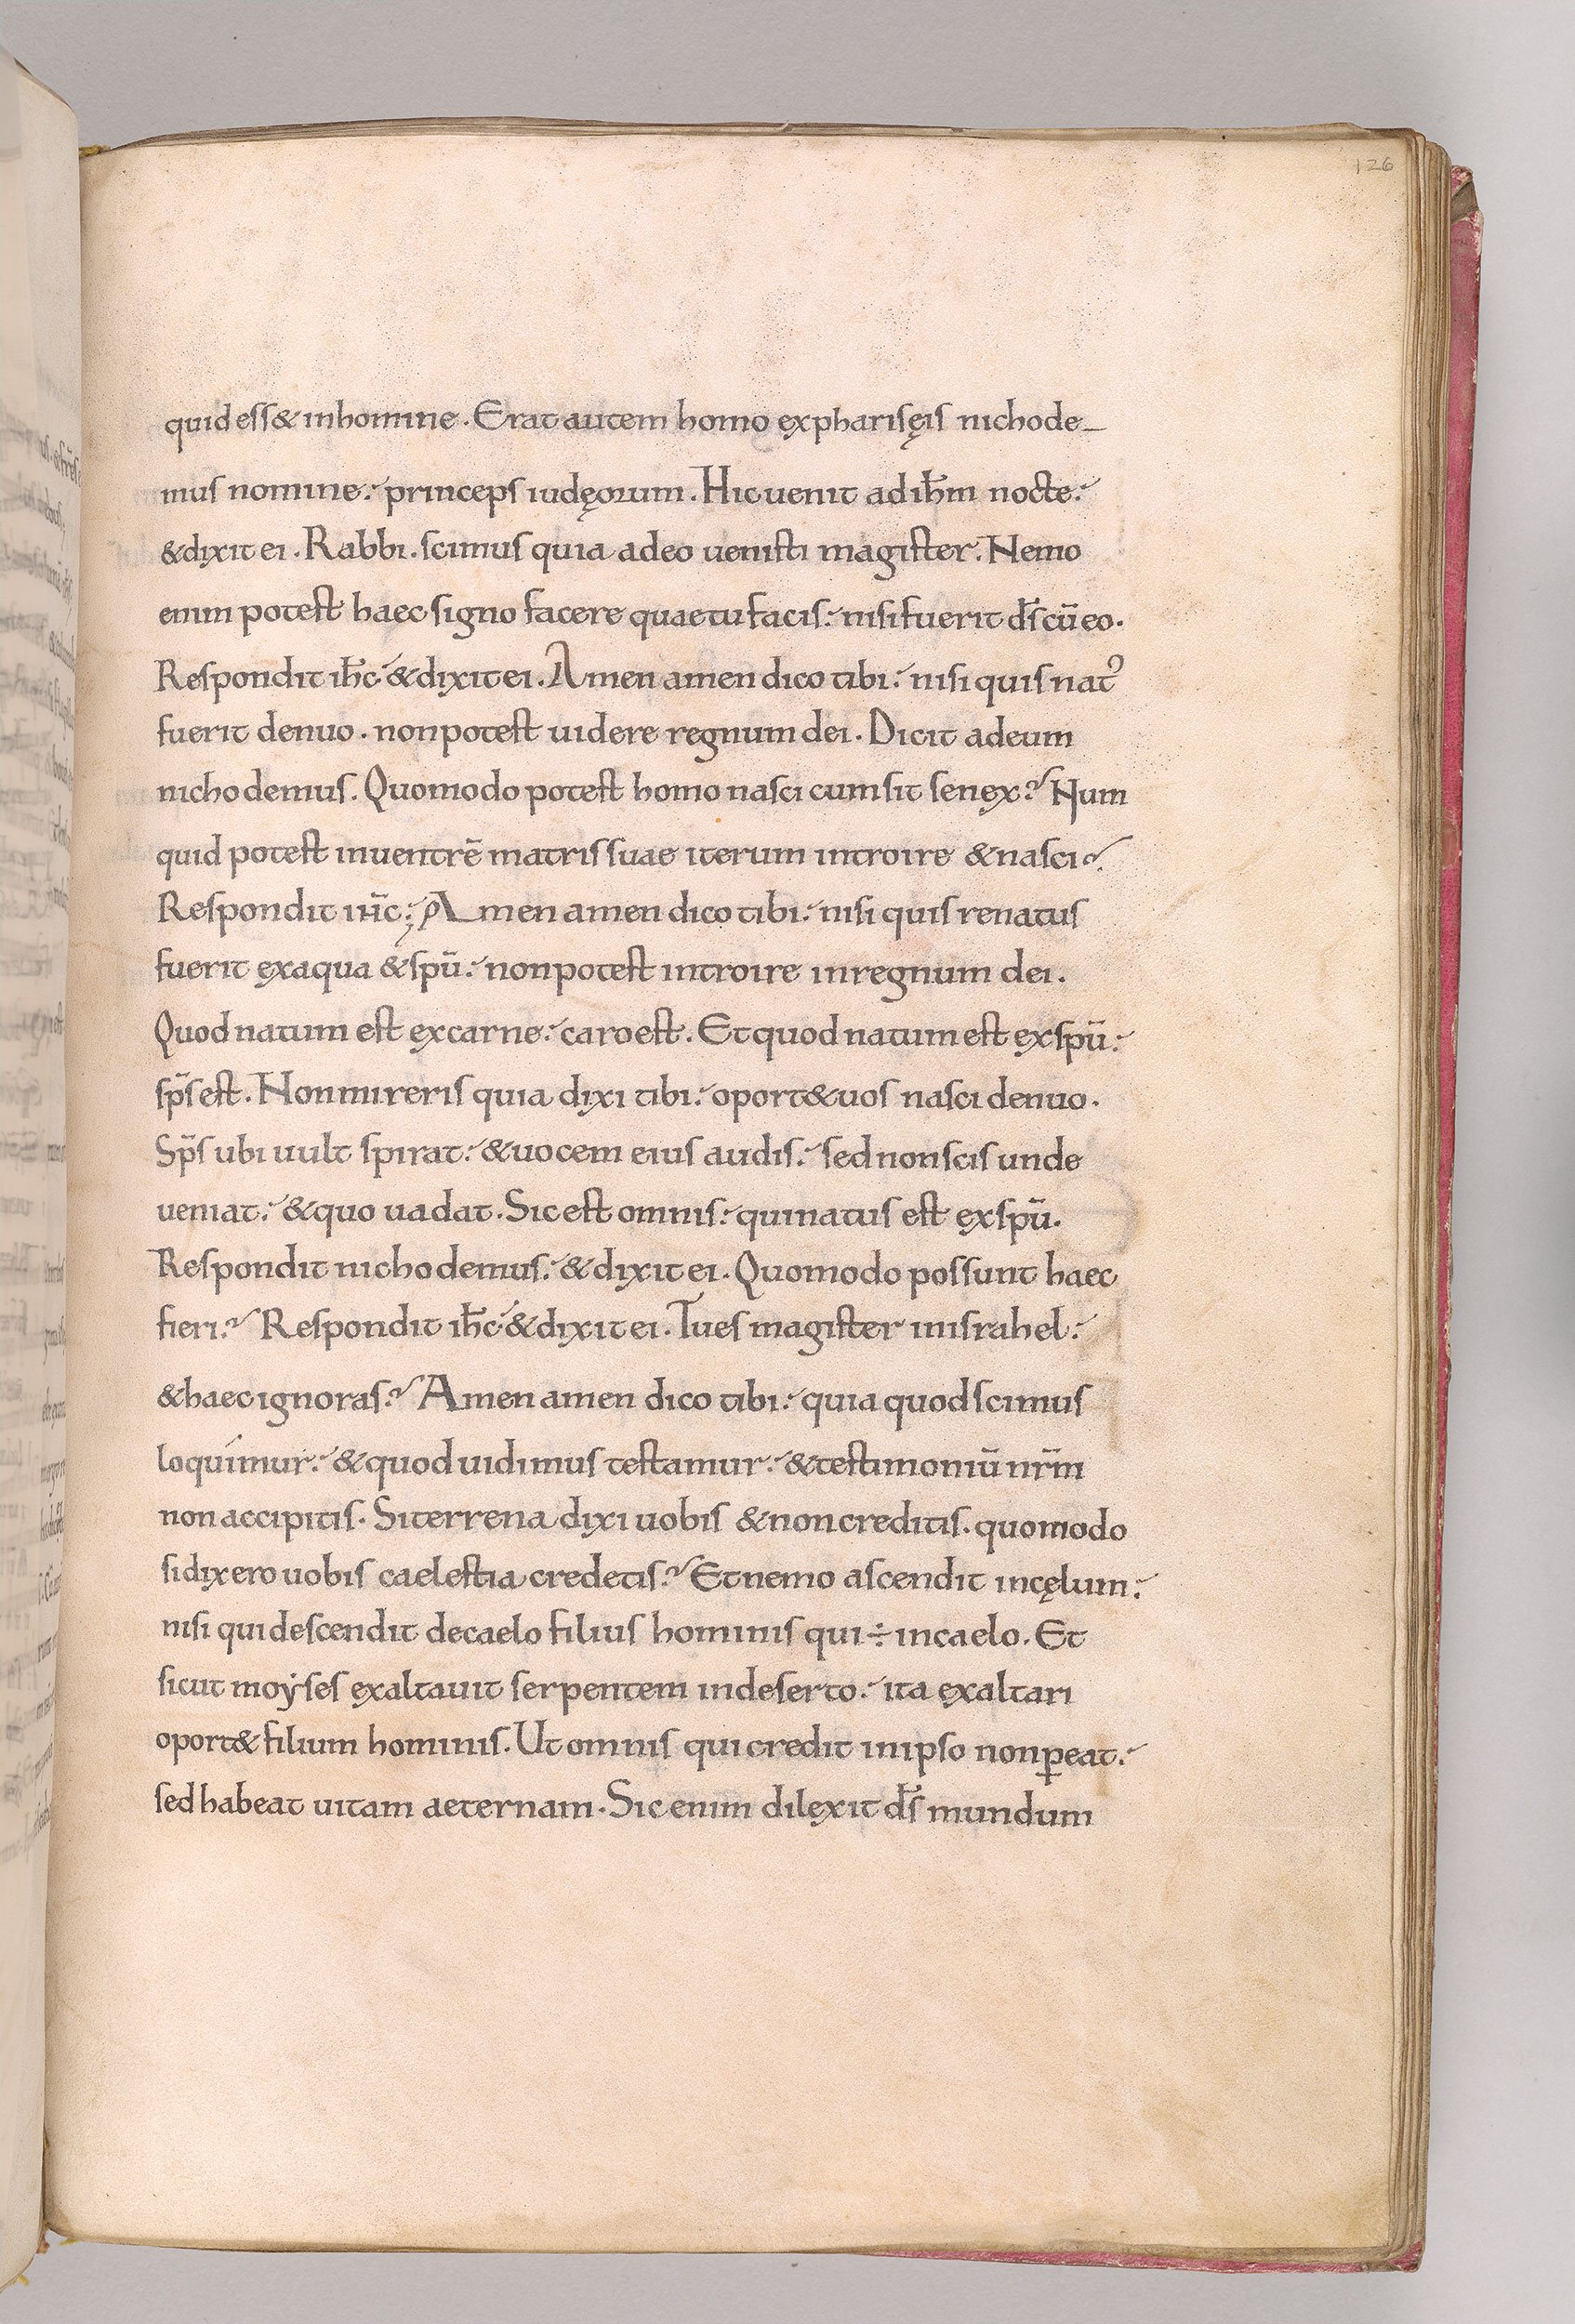 126
quid ess& in homine. Erat autem homo ex pharisęis nichode-
mus nomine. princeps iudęorum. Hic uenit ad ih̅m nocte.
& dixit ei. Rabbi. scimus quia a deo uenisti magister. Nemo
enim potest haec signo facere quae tu facis. nisi fuerit d̅s cū eo.
Respondit ih̅c & dixit ei. Amen amen dico tibi. nisi quis natꝰ
fuerit denuo. non potest uidere regnum dei. Dicit ad eum
nichodemus. Quomodo potest homo nasci cum sit senex? Num
quid potest in uentrē matris suae iterum introire & nasci?
Respondit ih̅c. Amen amen dico tibi. nisi quis renatus
fuerit ex aqua & spū. non potest introire in regnum dei.
Quod natum est ex carne. caro est. Et quod natum est ex spū.
sp̅s est. Non mireris quia dixi tibi. oport& uos nasci denuo.
Sp̅s ubi uult spirat. & uocem eius audis. sed non scis unde
ueniat. & quo uadat. Sic est omnis. qui natus est ex spū.
Respondit nichodemus. & dixit ei. Quomodo possunt haec
fieri? Respondit ih̅c & dixit ei. Tu es magister in israhel.
& haec ignoras? Amen amen dico tibi. quia quod scimus
loquímur. & quod uidimus testamur. & testimoniū nr̅m
non accipitis. Si terrena dixi uobis & non creditis. quomodo
si dixero uobis caelestia credetis? Et nemo ascendit in cęlum.
nisi qui descendit de caelo filius hominis qui ÷ in caelo. Et
sicut moẏses exaltauit serpentem in deserto. ita exaltari
oport& filium hominis. Ut omnis qui credit in ipso non ꝑeat.
sed habeat uitam aeternam. Sic enim dilexit d̅s mundum